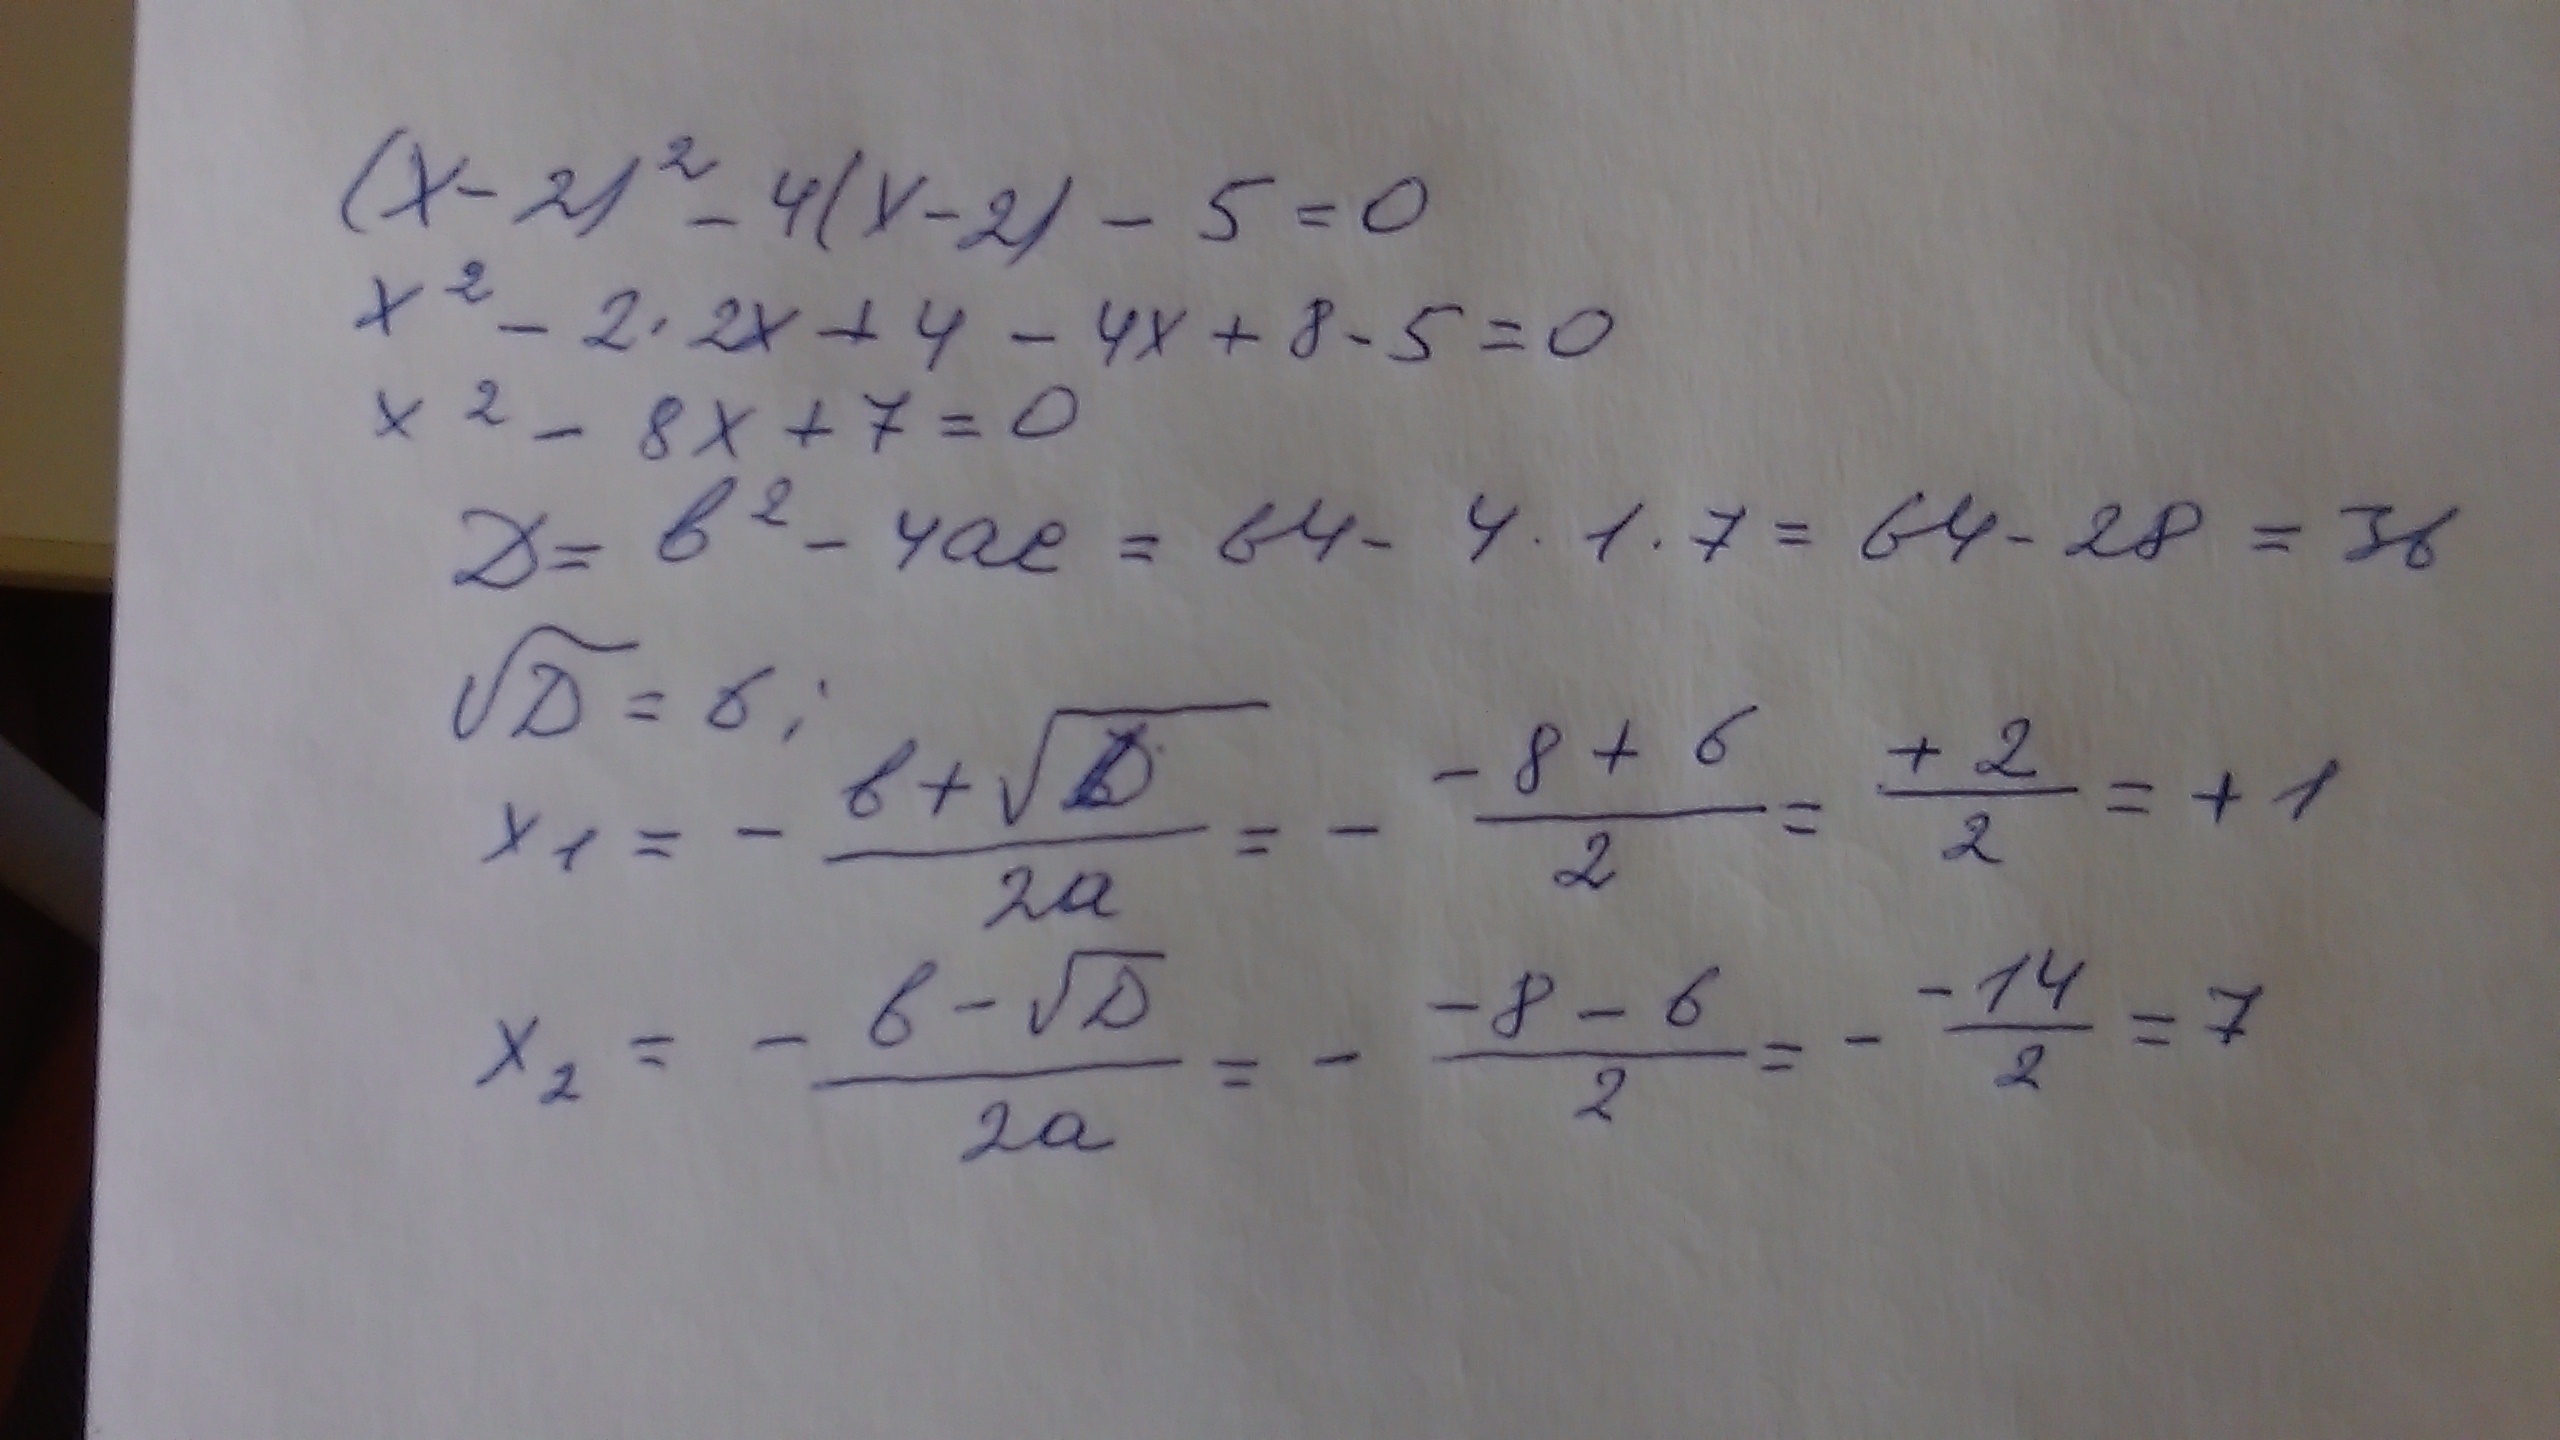 (x-2)² - 4(x-2) - 5 = 0
x² - 2·2x + 4 - 4x + 8 - 5 = 0
x² - 8x + 7 = 0
D = b² - 4ac = 64 - 4·1·7 = 64 - 28 = 36
√D = 6;
x₁ = - (b + √D)/(2a) = - (-8 + 6)/2 = (+2)/2 = +1
x₂ = - (b - √D)/(2a) = - (-8 - 6)/2 = - (-14)/2 = 7